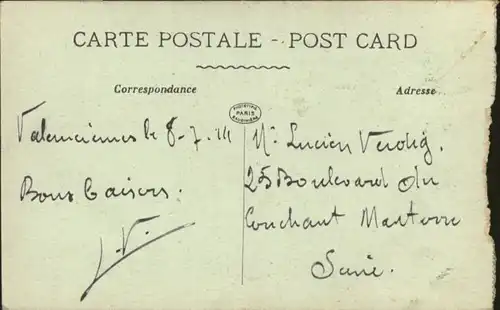 CARTE POSTALE - POST CARD
Correspondance
Adresse
PARIS
Valenciennes le 8-7.14
Bons baisers.
J.V.
Mr. Lucien Verdig.
25 Boulevard du
Couchant Nanterre
Seine.